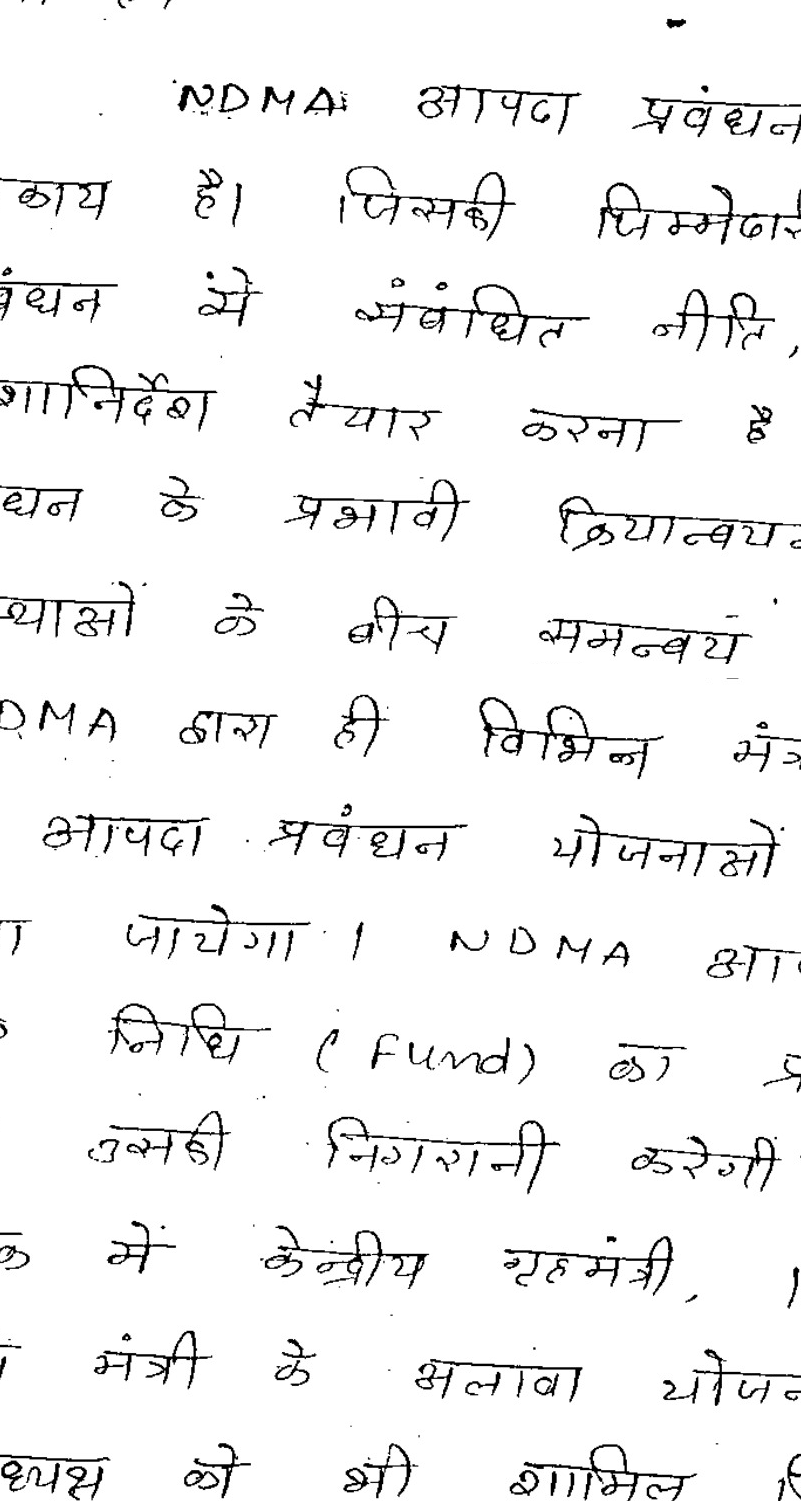 NDMA आपदा प्रबंधन
काय है। जिसकी जिम्मेदार
बंधन से संबंधित नीति,
शानिर्देश तैयार करना है
धन के प्रभावी क्रियान्वयन
थाओं के बीच समन्वय
DMA द्वारा ही विभिन्न मंत्र
आपदा प्रबंधन योजनाओं
जायेगा । NDMA आप
निधि (Fund) का प्र
उसकी निगरानी करेगी
क में केन्द्रीय गृहमंत्री,
मंत्री के अलावा योजन
ध्यक्ष को भी शामिल